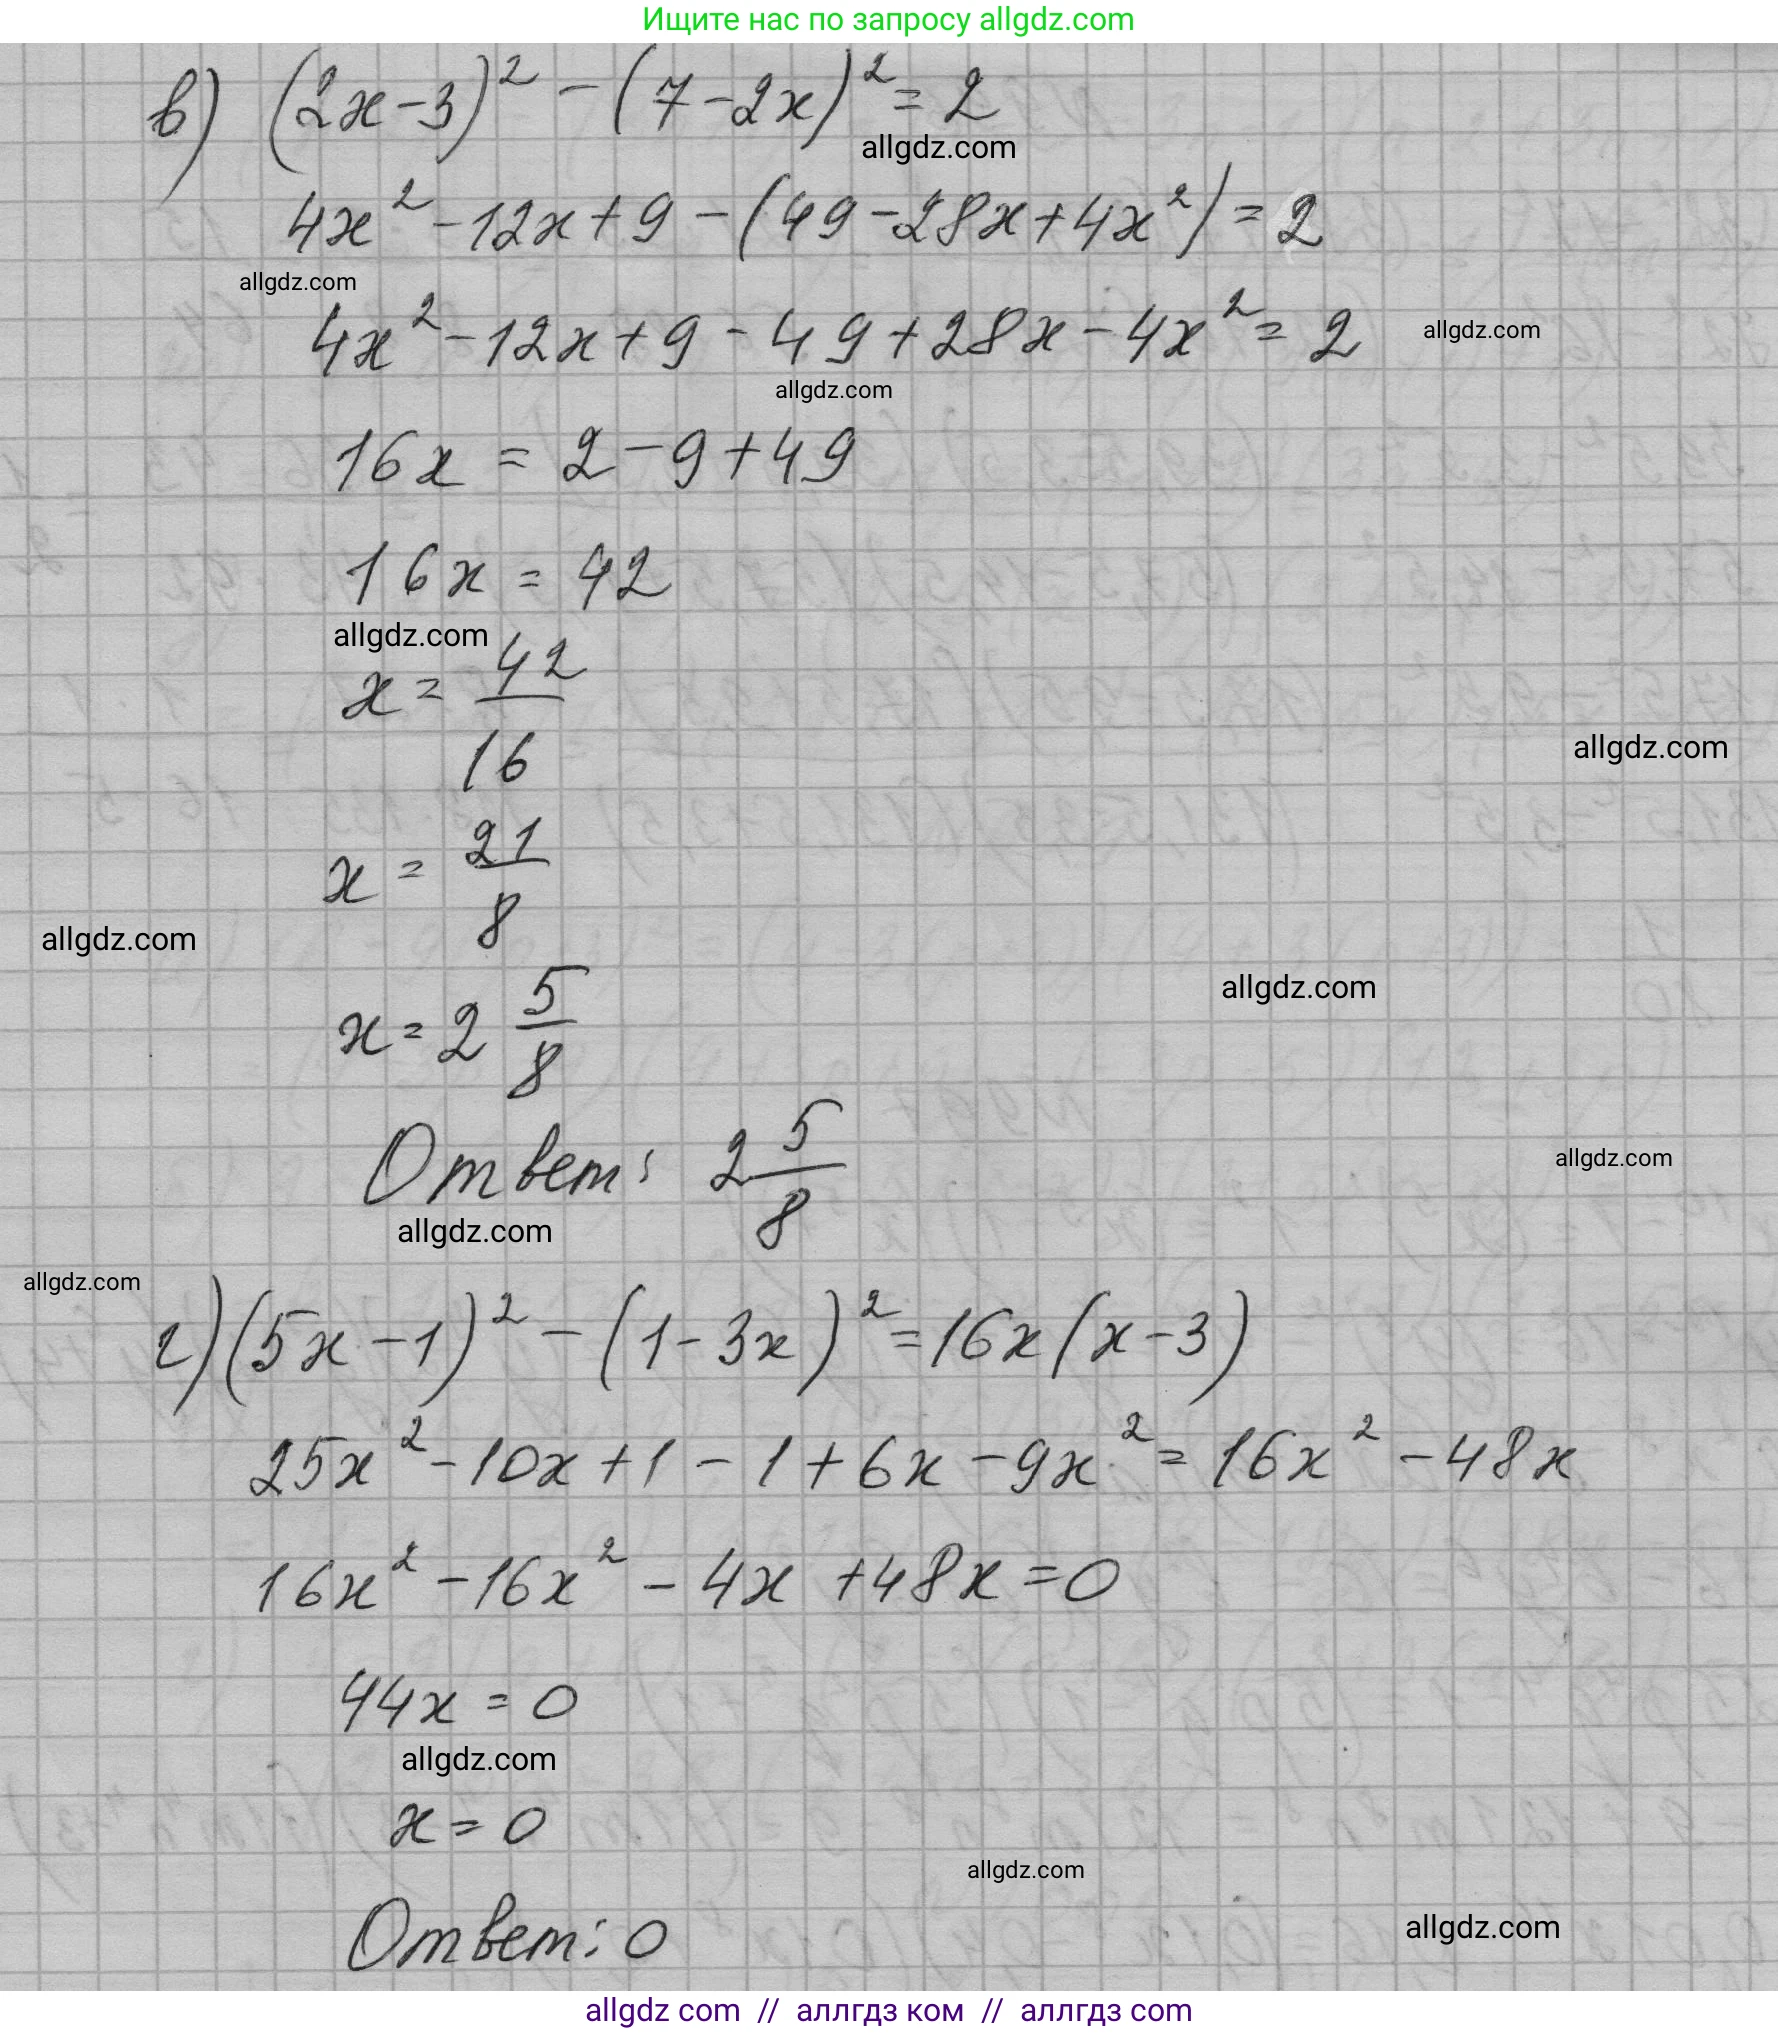 Ищите нас по запросу allgdz.com
в) (2x-3)² - (7-2x)² = 2
allgdz.com
4x² - 12x + 9 - (49 - 28x + 4x²) = 2
allgdz.com
4x² - 12x + 9 - 49 + 28x - 4x² = 2
allgdz.com
allgdz.com
16x = 2 - 9 + 49
16x = 42
allgdz.com
x = 42/16
allgdz.com
x = 21/8
allgdz.com
allgdz.com
x = 2 5/8
Ответ: 2 5/8
allgdz.com
allgdz.com
allgdz.com
г) (5x-1)² - (1-3x)² = 16x(x-3)
25x² - 10x + 1 - 1 + 6x - 9x² = 16x² - 48x
16x² - 16x² - 4x + 48x = 0
44x = 0
allgdz.com
x = 0
allgdz.com
allgdz.com
Ответ: 0
allgdz com // аллгдз ком // аллгдз com